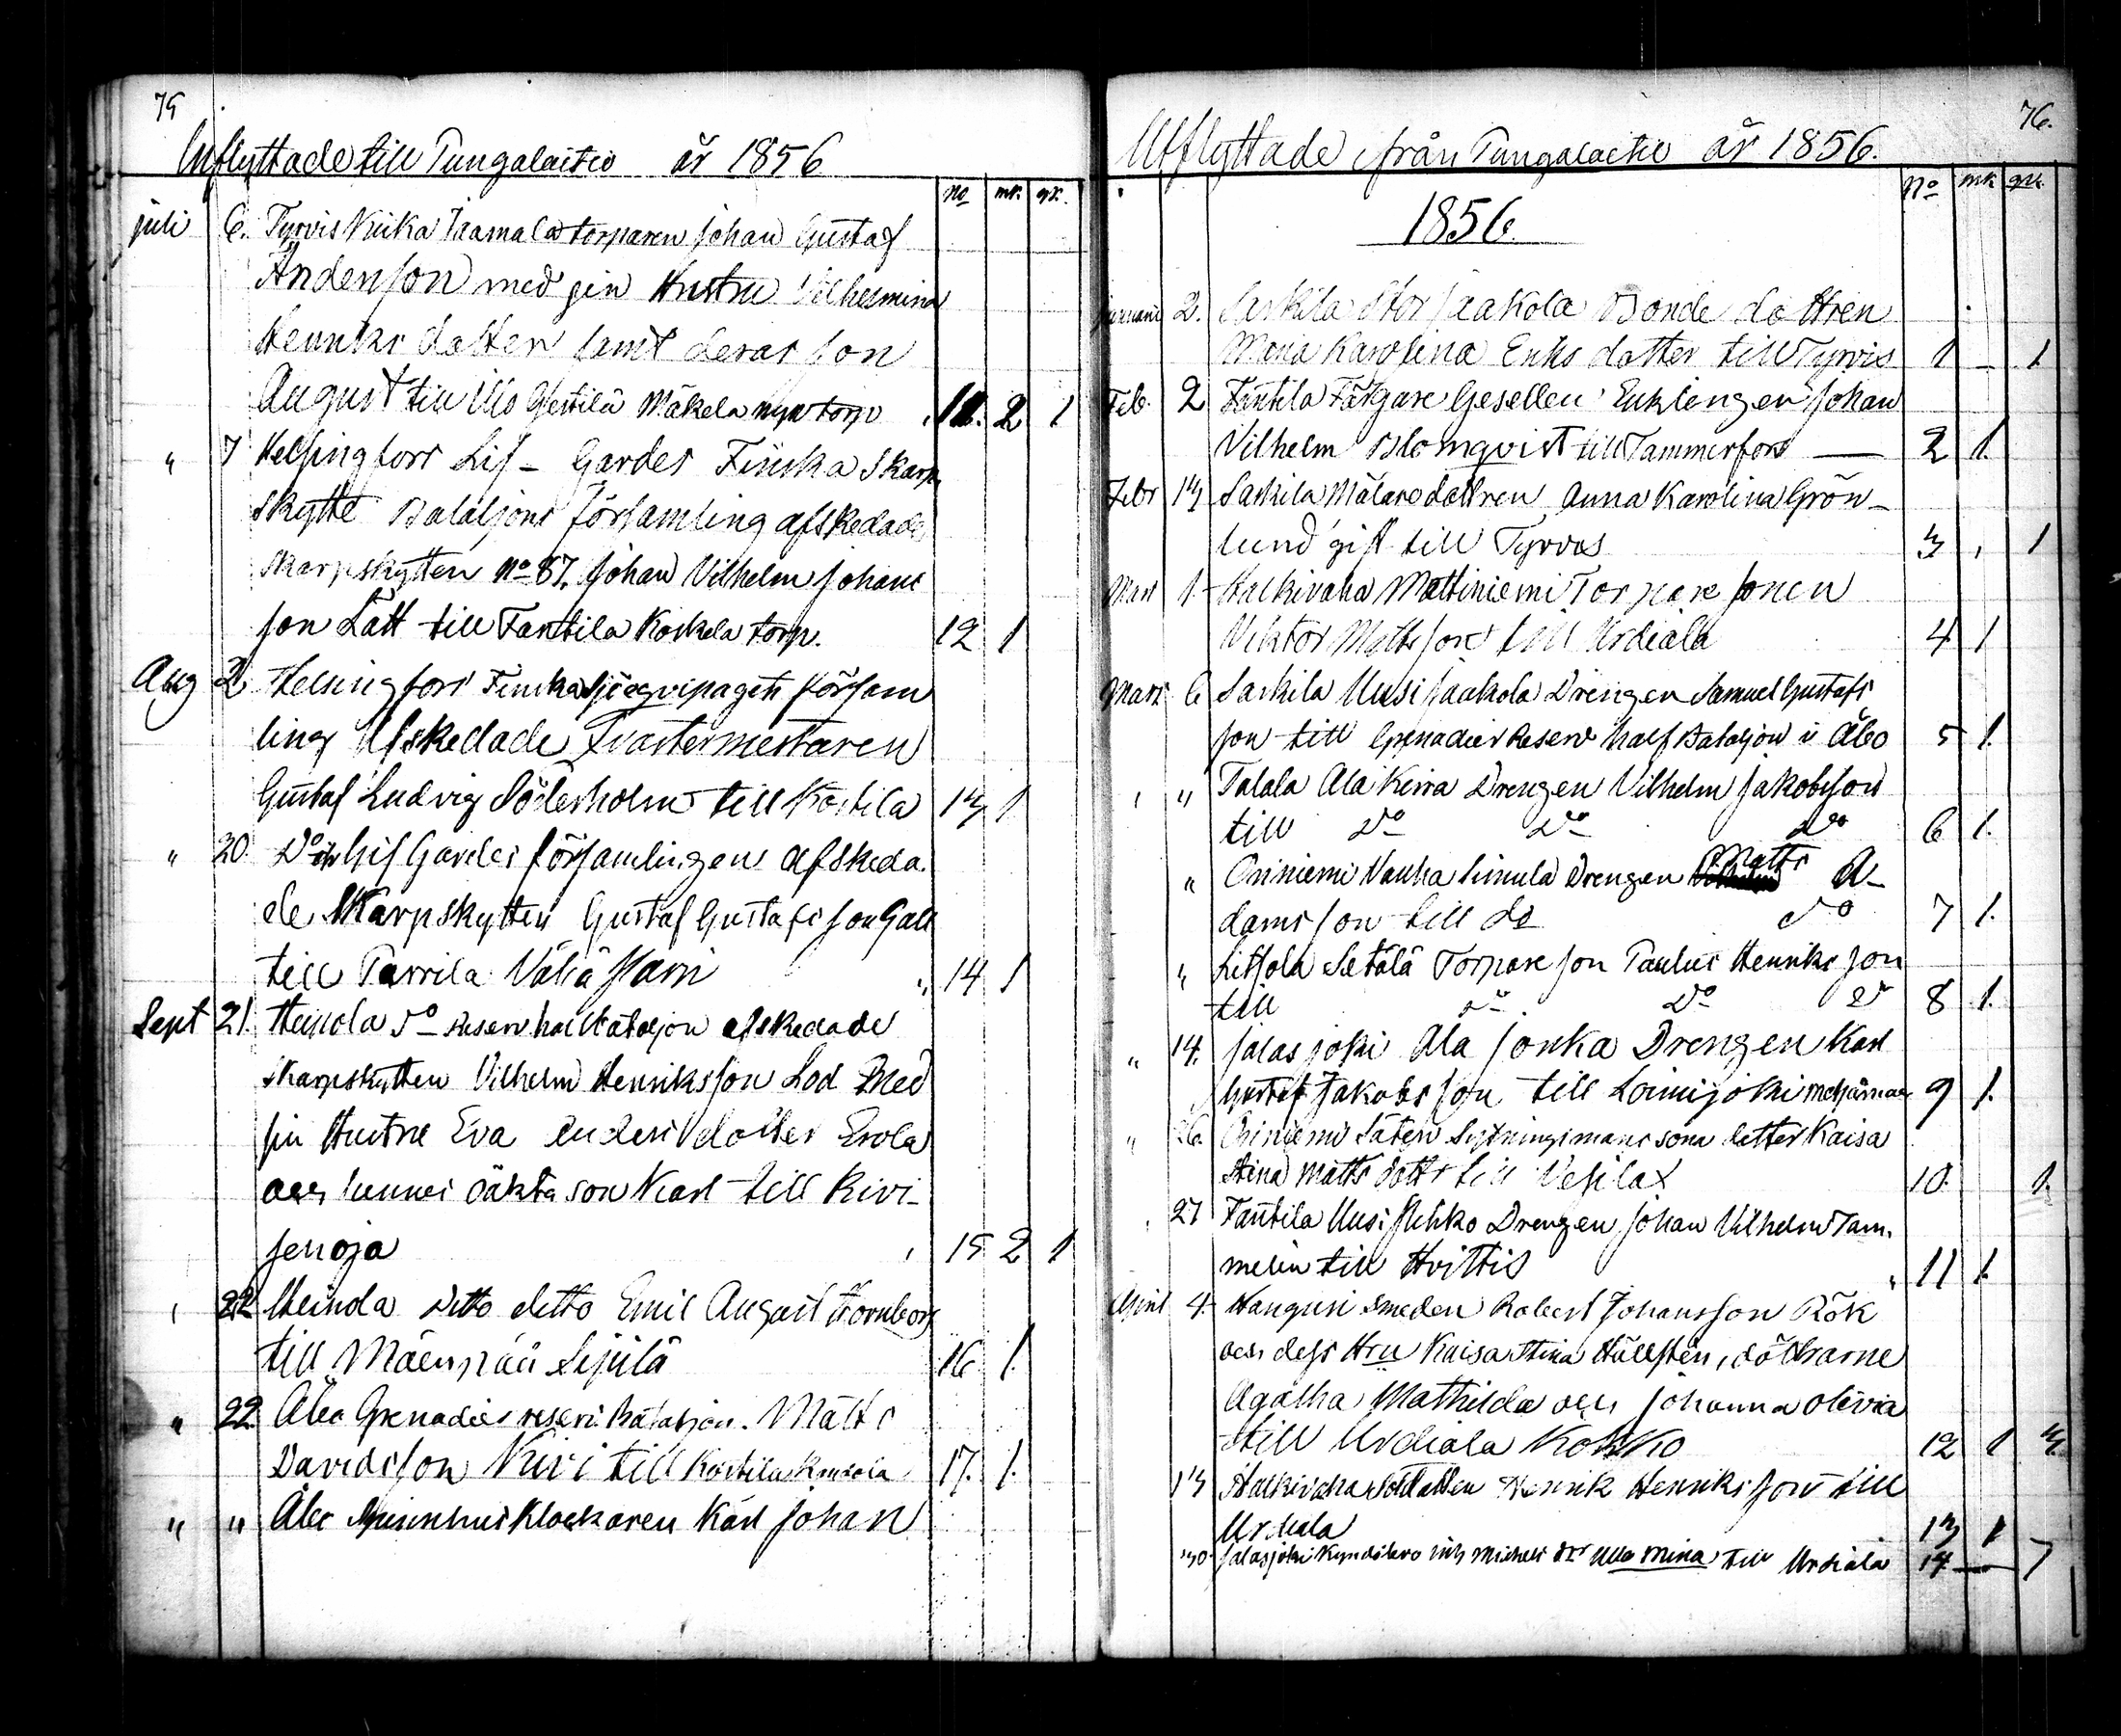 75
Inflyttade till Pungalaitio år 1856
no mk. qk.
juli 6. Tyrvis Kiika Jaamala torparen Johan Gustaf
Andersson med sin Hustru Vilhelmina
Henriks dotter samt deras son
August till Mäkelä nya torp 11. 2 1
" 7 Helsingfors Lif-Gardes Finska Skarp
skytte Bataljons församling afskedade
skarpskytten No 87. Johan Vilhelm Johans
son Lätt till Fantila Koskela torp. 12 1
Aug 2 Helsingfors Finska Sjöeqvipagets försam
ling Afskedade Qvartermestaren
Gustaf Ludvig Söderholm till Kostila 13 1
" 20. Do Lif Gardes församlingens afskeda
de Skarpskytten Gustaf Gustafsson Gall
till Parrila Vähä " 14 1
Sept 21. Heinola Do Reserv Bataljon afskedade
skarpskytten Vilhelm Henriksson Lod med
sin Hustru Eva Anders dotter Erola
och hennes oäkta son Karl till Kivi-
senoja 15 2 1
, 22 Heinola ditto ditto Emil August Fornborg
till Mäenpää Sipilä 16 1.
" 22 Åbo Grenadier reserv Bataljon. Matts
Davidsson Kivi till Kostila 17. 1.
" " Åbo Spinnhus Klockaren Karl Johan
76.
Utflyttade ifrån Pungalaitio år 1856.
No mk qk.
1856.
Januari 2. Sarkila Stor Jaakola Bonde dottren
Maria Karolina Eriks dotter till Tyrvis 1 - 1
Feb. 2 Fantila Färgare Gesellen Enklingen Johan
Vilhelm Blomqvist till Tammerfors — 2 1.
Febr 13 Sarkila Målare dottren Anna Karolina Grön-
lund gift till Tyrvis 3 , 1
Mars 1 Halkivaha Mattiniemi Torpare sonen
Viktor Mattsson till Urdiala 4 1
Mars 6 Sarkila Uusi Jaakola Drengen Samuel Gustafs
son till Grenadier Reserv half Bataljon i Åbo 5 1.
, " Talala Ala Kirra Drengen Vilhelm Jakobsson
till Do Do Do 6 1.
" Oriniemi Vanha Simula Drengen Matts A-
damsson till do do 7 1.
" Litsola Setälä Torpare son Paulus Henriks son
till Do Do Do 8 1.
" 14. Jalasjoki Ala Jonka Drengen Karl
Gustaf Jakobsson till Loimijoki 9 1.
" 26 Oriniemi Säteri Sytningsmans sona dotter Kaisa
Stina Matts dottr till Vesilax 10. 1.
27 Fantila Uusi Drengen Johan Vilhelm Tam-
melin till Hvittis " 11 1.
April 4 Kangusi smeden Robert Johansson Rök
och dess Hru Kaisa Stina Hällsten, döttrarne
Agatha Mathilda och Johanna Olivia
till Urdiala Kokko 12 1 3
13 Halkivaha Soldaten Henrik Henriksson till
Urdiala 13 1
30 Jalasjoki Ulla Mina till Urdiala 14 — 1